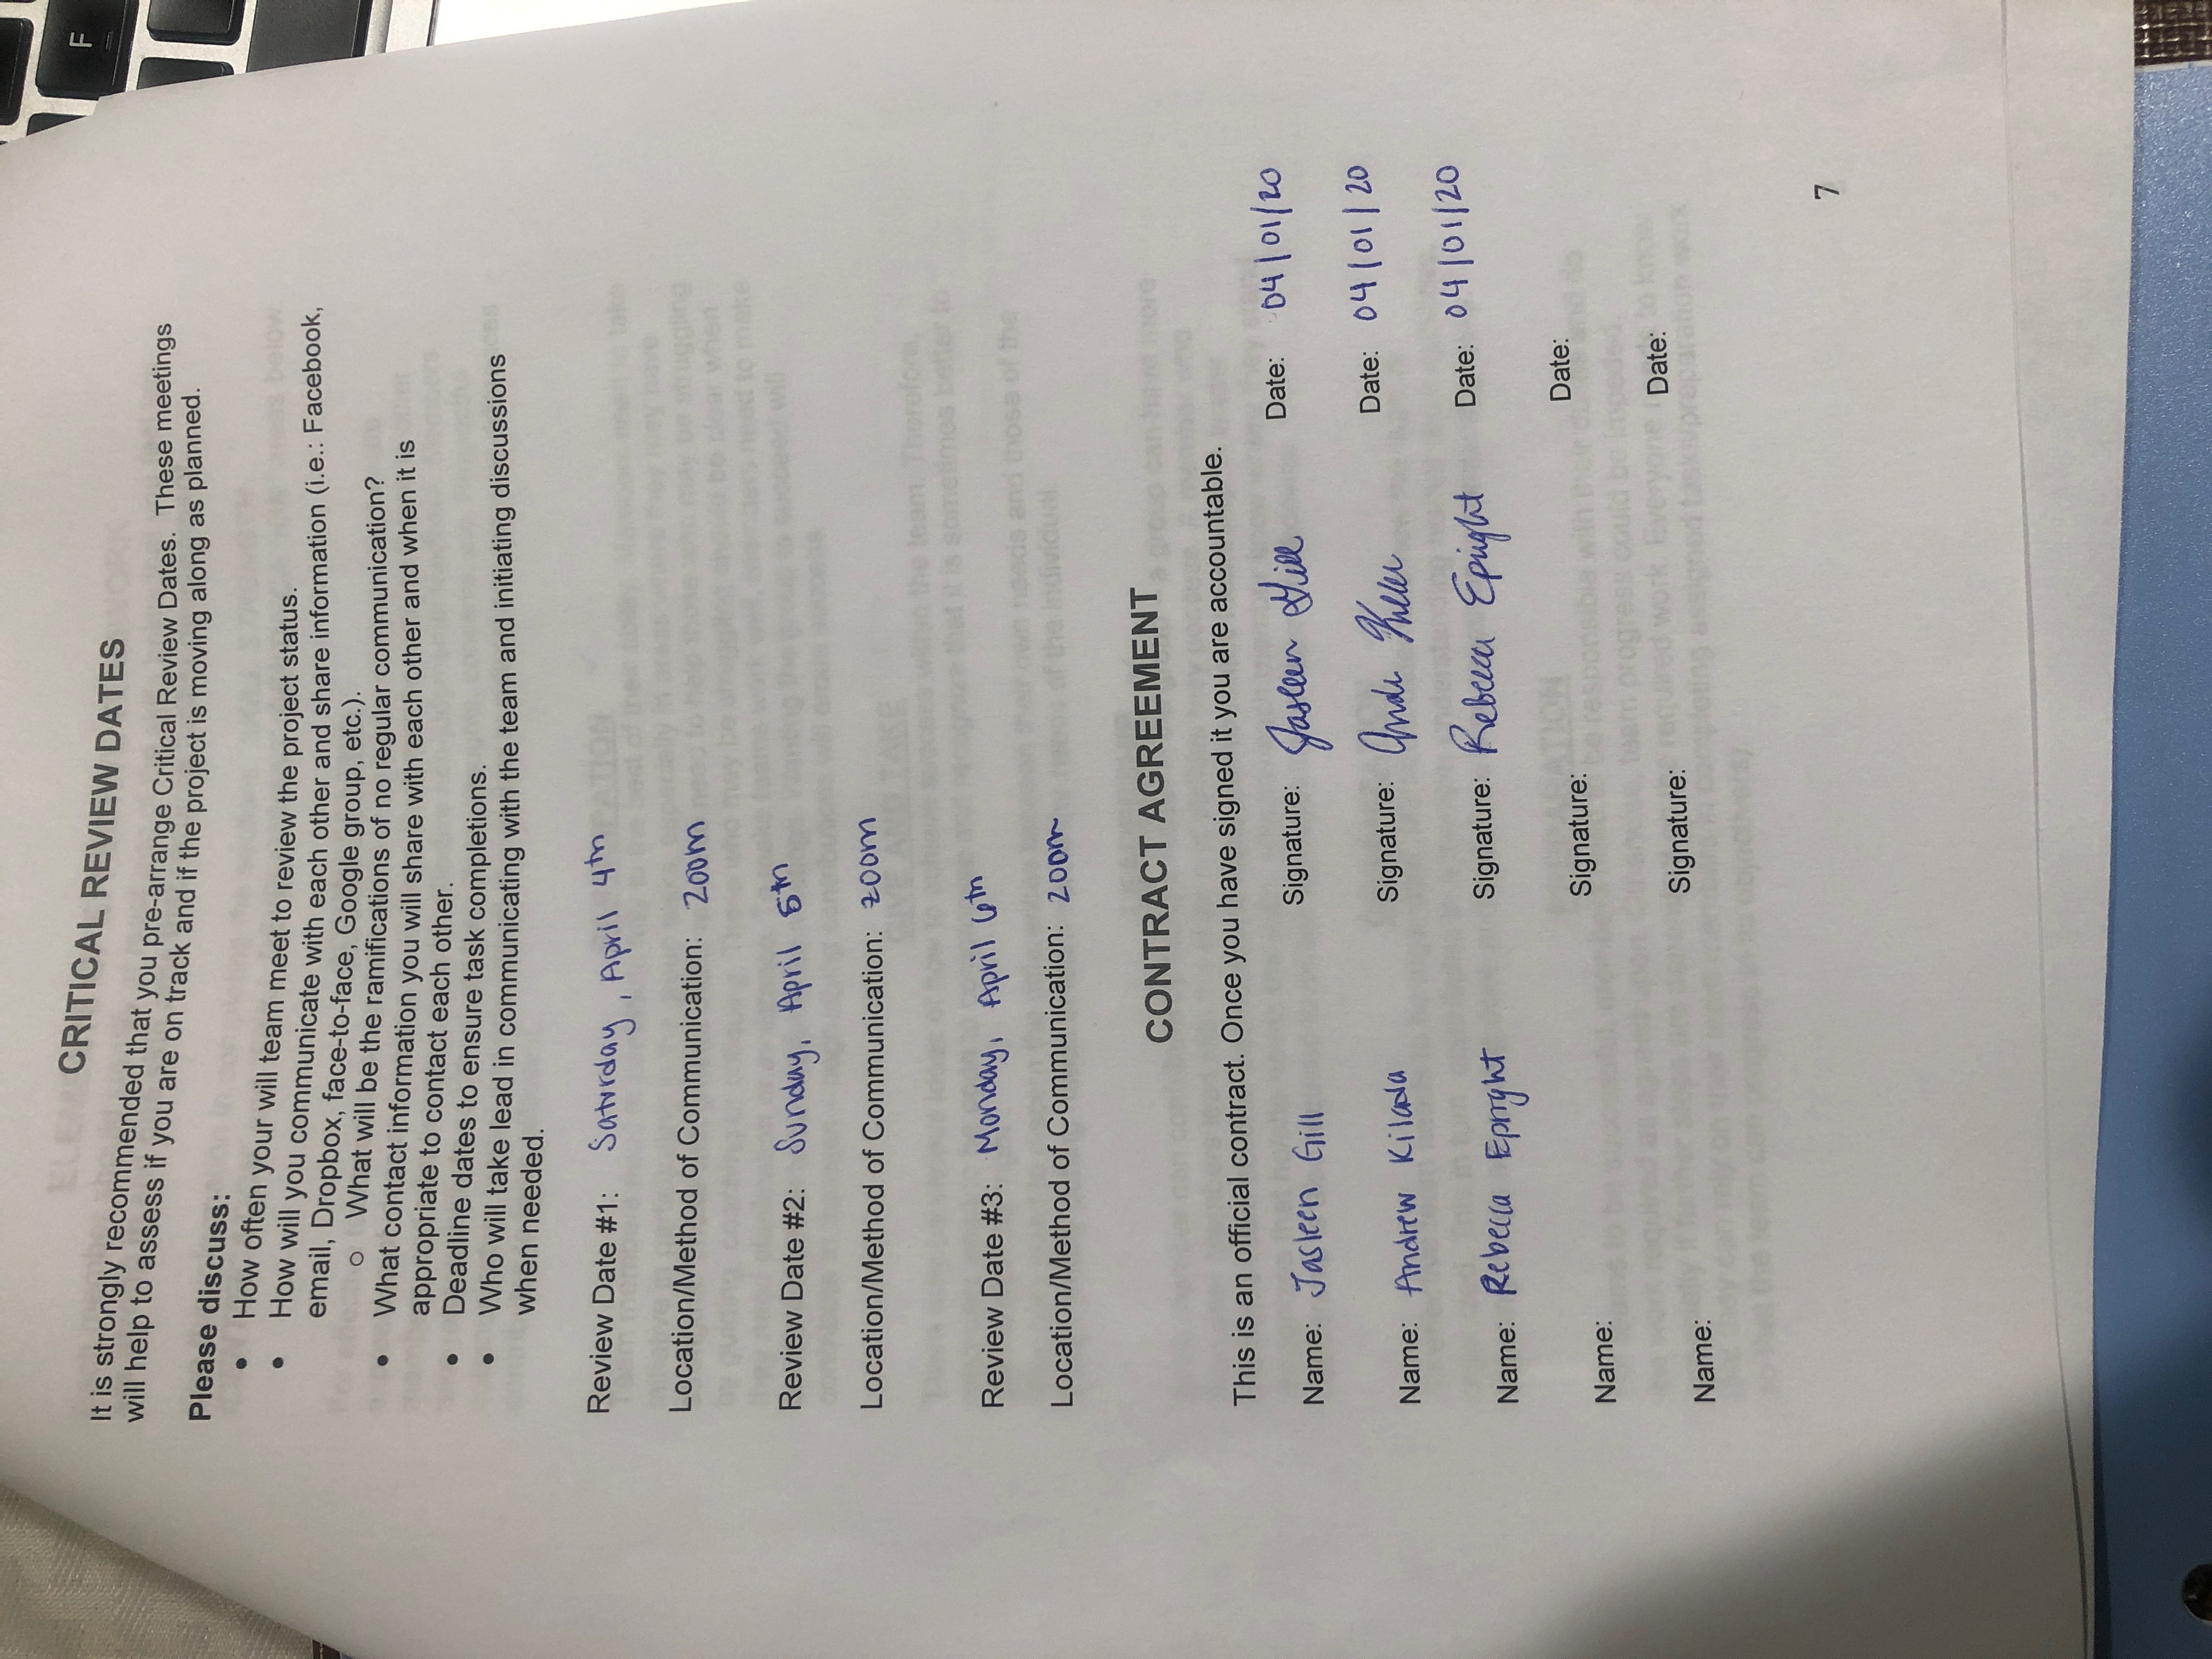 CRITICAL REVIEW DATES
It is strongly recommended that you pre-arrange Critical Review Dates. These meetings
will help to assess if you are on track and if the project is moving along as planned.
Please discuss:
• How often your will team meet to review the project status.
• How will you communicate with each other and share information (i.e.: Facebook,
email, Dropbox, face-to-face, Google group, etc.).
o What will be the ramifications of no regular communication?
• What contact information you will share with each other and when it is
appropriate to contact each other.
• Deadline dates to ensure task completions.
• Who will take lead in communicating with the team and initiating discussions
when needed.
Review Date #1: Saturday, April 4th
Location/Method of Communication: zoom
Review Date #2: Sunday, April 5th
Location/Method of Communication: zoom
Review Date #3: Monday, April 6th
Location/Method of Communication: zoom
CONTRACT AGREEMENT
This is an official contract. Once you have signed it you are accountable.
Name: Jasleen Gill Signature: Jasleen Gill Date: 04/01/20
Name: Andrew Kilada Signature: Date: 04/01/20
Name: Rebecca Epright Signature: Rebecca Epright Date: 04/01/20
Name: Signature: Date:
Name: Signature: Date:
7
F